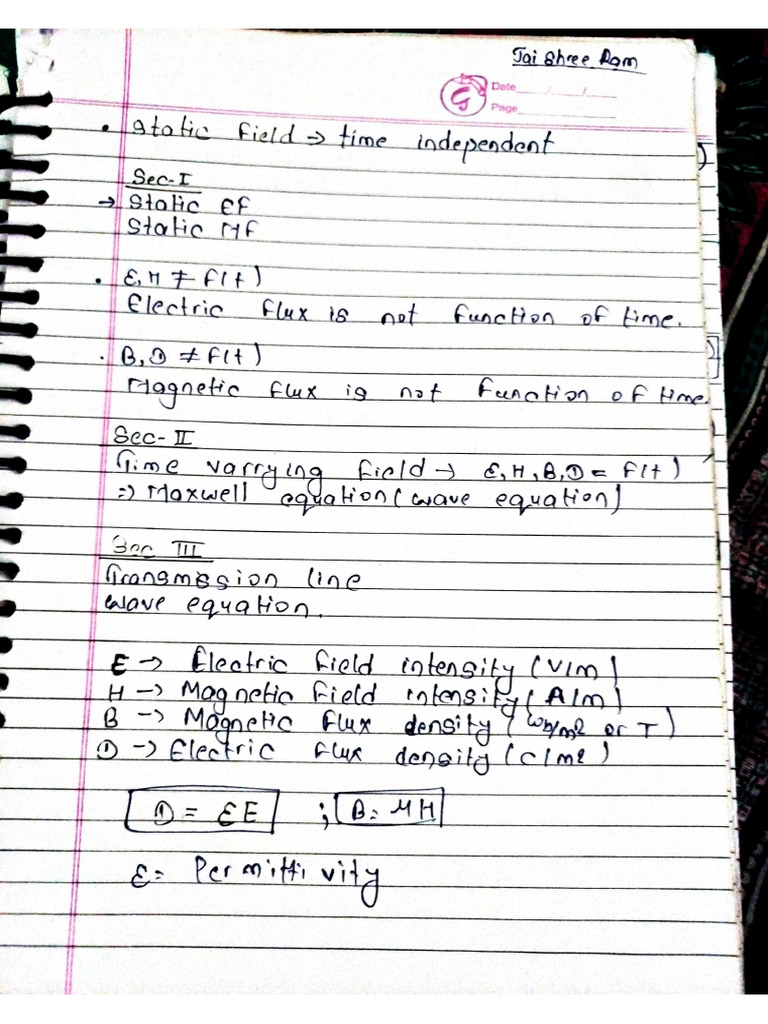 Jai Shree Ram
Date
Page
• Static field → time independent
Sec-I
→ Static EF
Static MF
• E, H ≠ f(t)
Electric flux is not function of time.
• B, D ≠ f(t)
Magnetic flux is not function of time
Sec-II
Time varrying field → E, H, B, D = f(t)
⇒ Maxwell equation (wave equation)
Sec III
Transmission line
wave equation.
E → Electric field intensity (V/m)
H → Magnetic field intensity (A/m)
B → Magnetic flux density (wb/m2 or T)
D → Electric flux density (C/m2)
D = εE ; B = μH
ε = Permittivity